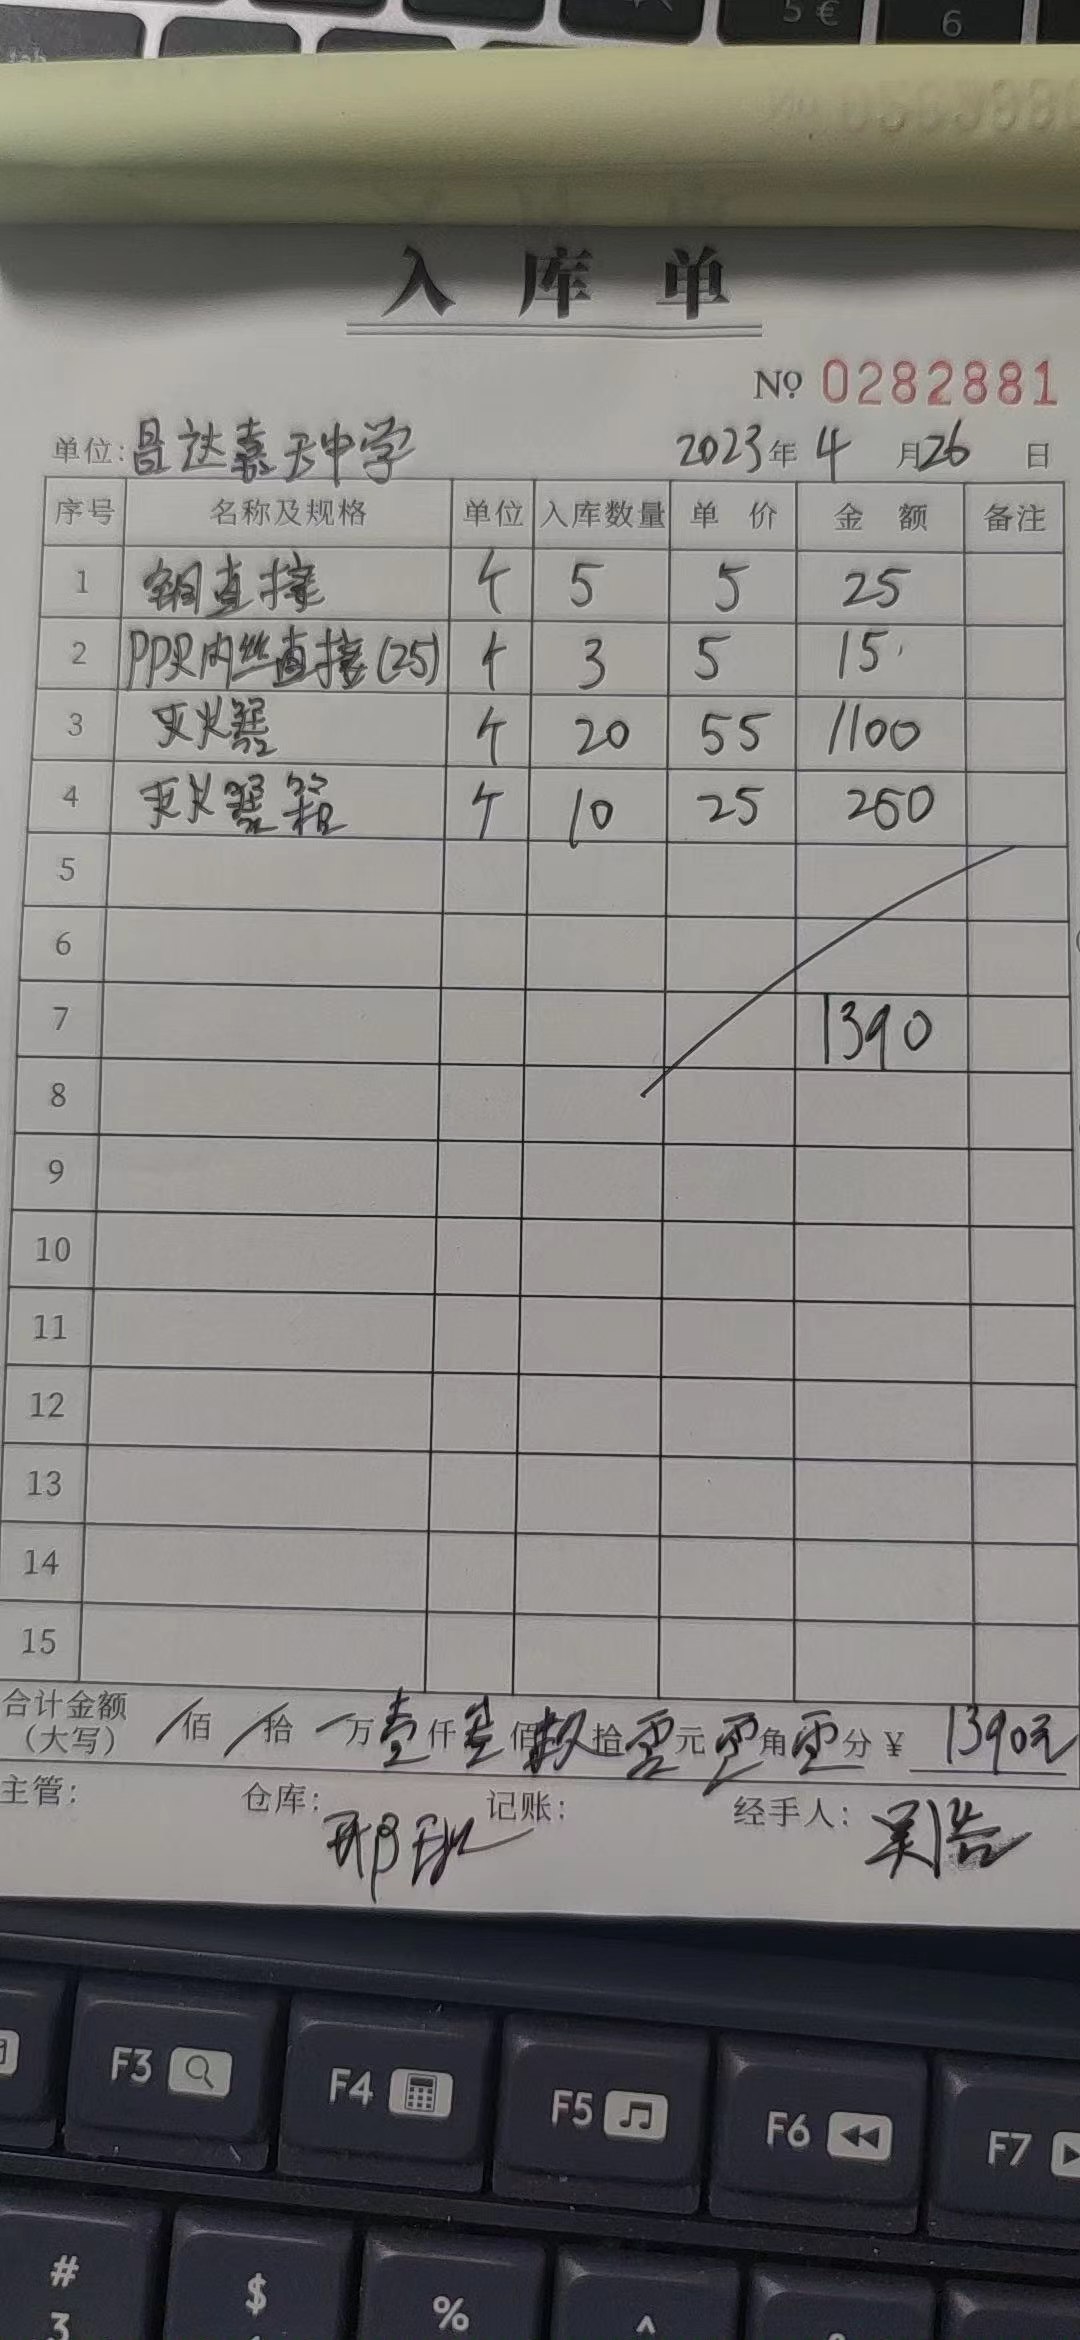 5 €
6
tab
入库单
№ 0282881
单位:昌达嘉天中学 2023年4月26日
序号 名称及规格 单位 入库数量 单价 金额 备注
1 铜直接 个 5 5 25
2 PPR内丝直接(25) 个 3 5 15
3 灭火器 个 20 55 1100
4 灭火器箱 个 10 25 250
5
6
7 1390
8
9
10
11
12
13
14
15
合计金额(大写) /佰/拾/万壹仟叁佰玖拾零元零角零分¥ 1390元
主管: 仓库: 记账: 经手人: 吴浩
F3 F4 F5 F6 F7
# $ % ^
3